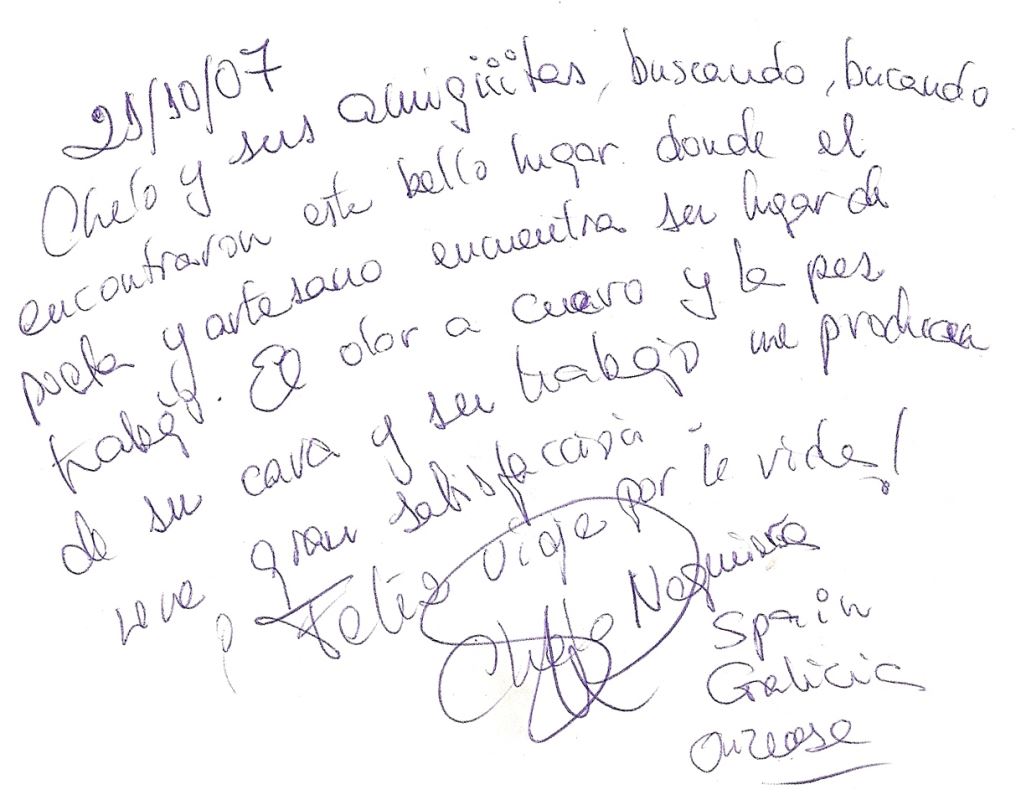 21/10/07
Chelo y sus amigüitas, buscando, bucando
encontraron este bello lugar donde el
poeta y artesano encuentra su lugar de
trabajo. El olor a cuero y la paz
de su cara y su trabajo me producen
gran satisfacción
¡Feliz viaje por la vida!
Chelo
Spain
Galicia
Ourense